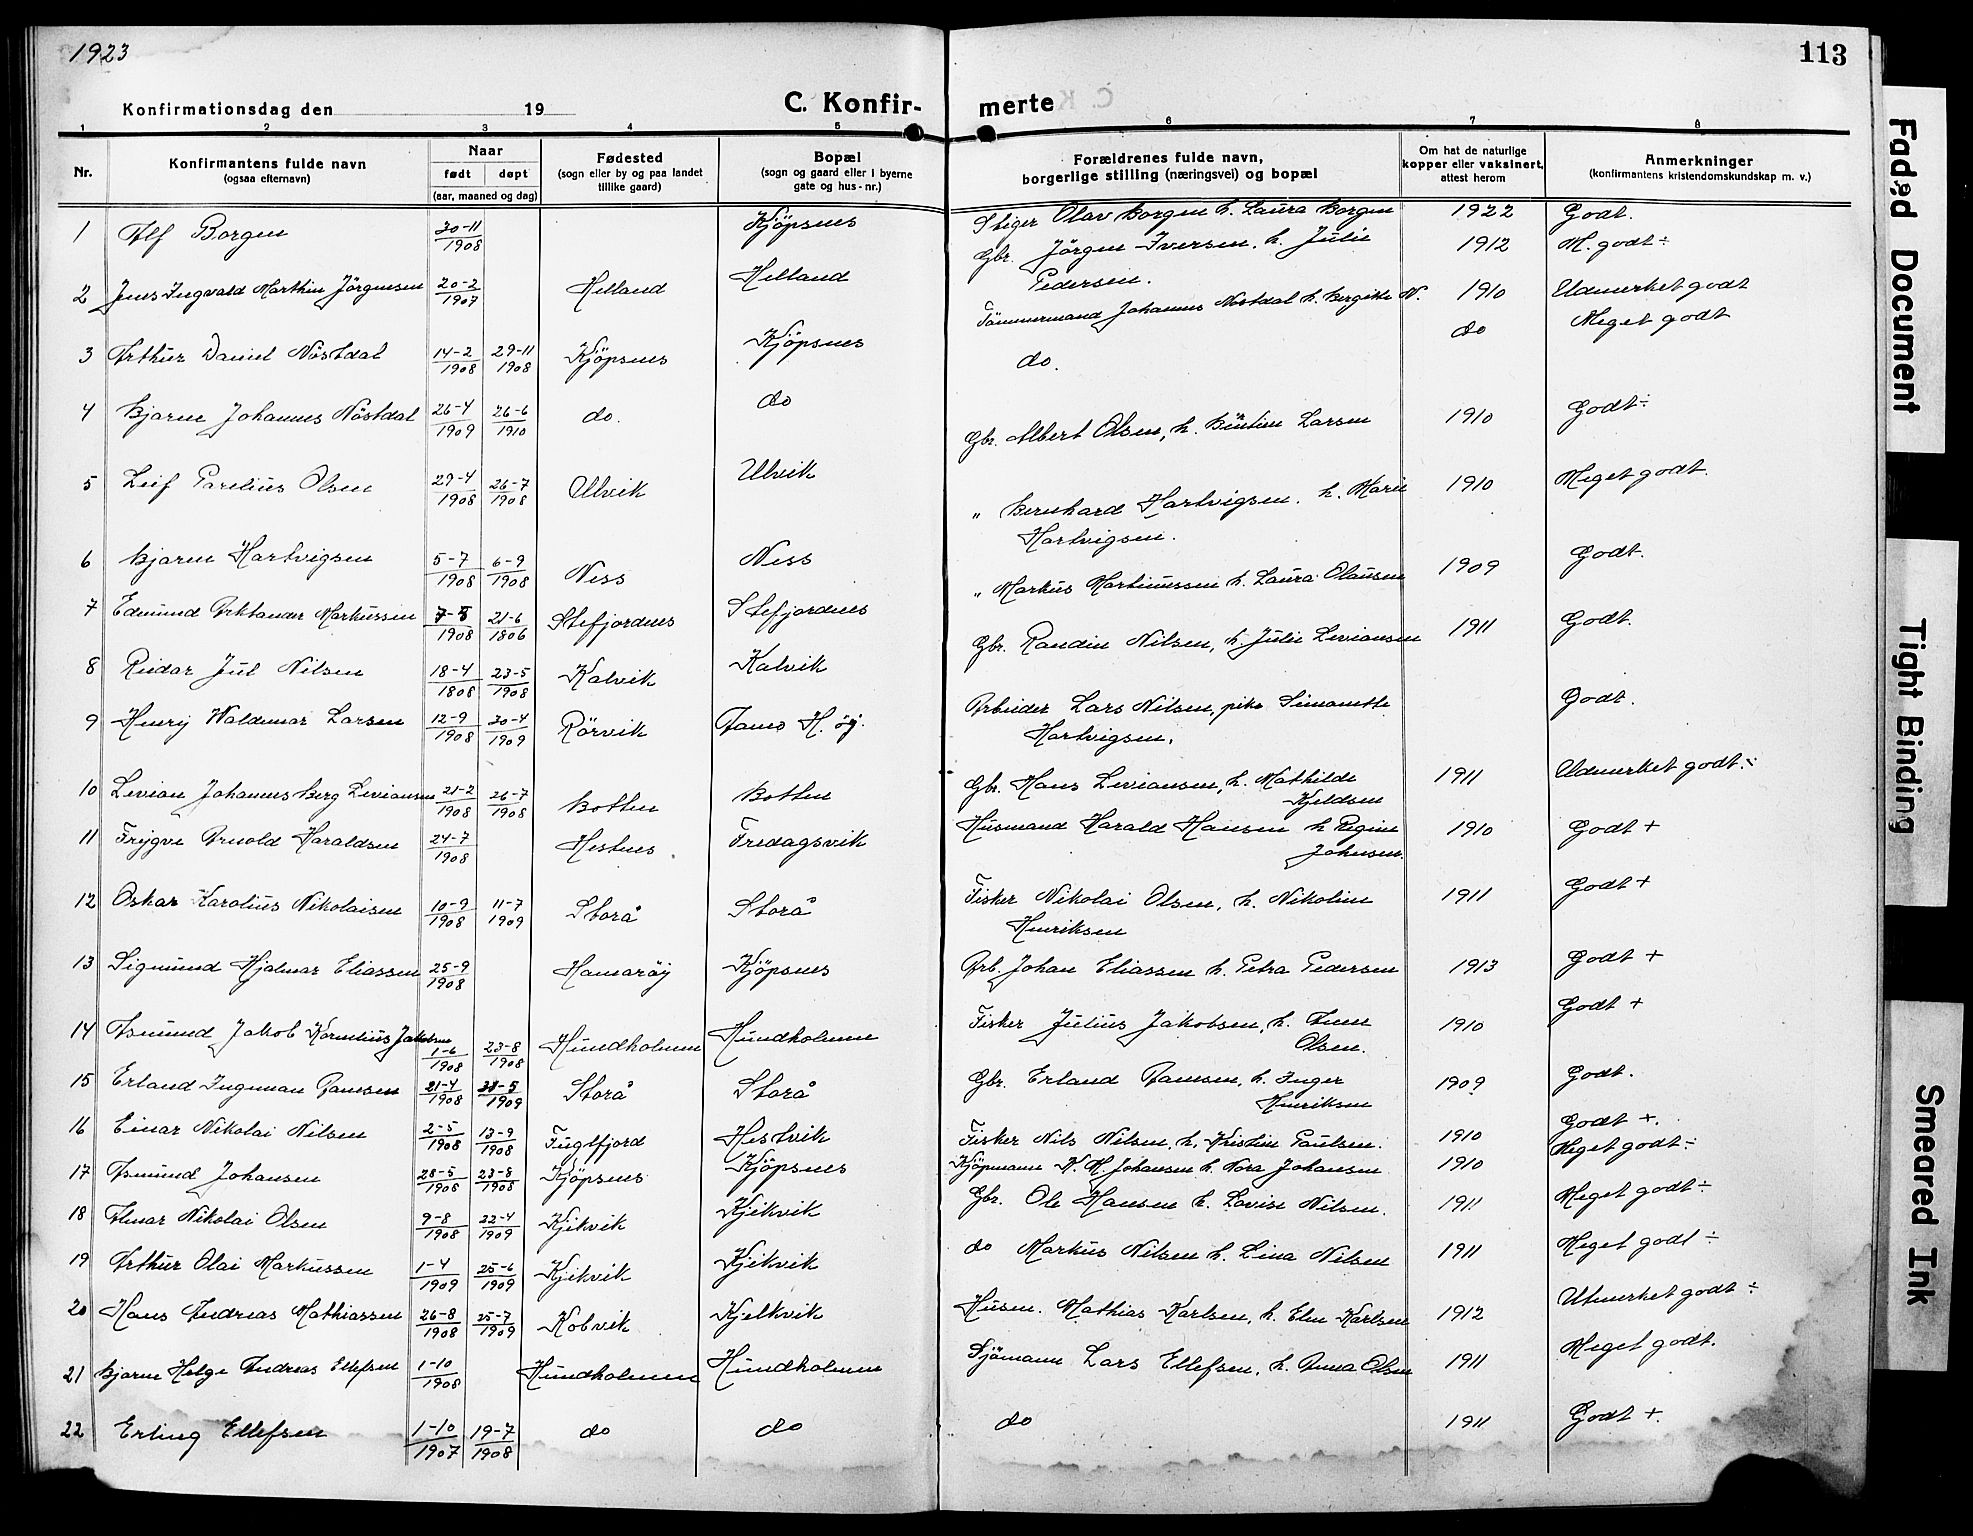 1923
113
Konfirmationsdag den 19
C. Konfir-
merte
1 2 3 4 5 6 7 8
Nr.
Konfirmantens fulde navn
(ogsaa efternavn)
Naar
født døpt
(aar, maaned og dag)
Fødested
(sogn eller by og paa landet
tillike gaard)
Bopæl
(sogn og gaard eller i byerne
gate og hus-nr.)
Forældrenes fulde navn,
borgerlige stilling (næringsvei) og bopæl
Om hat de naturlige
kopper eller vaksinert,
attest herom
Anmerkninger
(konfirmantens kristendomskundskap m. v.)
1 Alf Borgen 30-11 1908 Kjöpsnes Stiger Olav Borgen h. Laura Borgen 1922 Godt.
2 Jens Ingvald Marthin Jörgensen 20-2 1907 Helland Helland Gbr. Jörgen Iversen. h. Julie 1912 M. godt ÷
Pedersen.
3 Arthur Daniel Nöstdal 14-2 1908 29-11 1908 Kjöpsnes Kjöpsnes Tömmermand Johannes Nöstdal h. Bergitte N. 1910 Udmerket godt
4 Bjarne Johannes Nöstdal 26-4 1909 26-6 1910 do. do do. do Meget godt
5 Leif Parelius Olsen 29-4 1908 26-7 1908 Ulvik Ulvik Gbr. Albert Olsen, h. Larsen 1910 Godt ÷
6 Bjarne Hartvigsen 5-7 1908 6-9 1908 Ness Ness " Bernhard Hartvigsen. h. Marie 1910 Meget godt.
Hartvigsen.
7 Edmund Arktander Markussen 7-5 1908 21-6 1806 Stefjordnes Stefjordnes " Markus Martinussen h. Laura Olausen 1909 Godt.
8 Reidar Jul Nilsen 18-4 1808 23-5 1908 Kalvik Kalvik Gbr. Randin Nilsen, h. Julie Leviansen 1911 Godt.
9 Henry Waldemar Larsen 12-9 1908 30-4 1909 Rörvik H. öy. Arbeider Lars Nilsen, pike Simonette Godt.
Hartvigsen.
10 Levian Johannes Berg Leviansen 21-2 1908 26-7 1908 Botten Botten Gbr. Hans Leviansen, h. Mathilde 1911 Udmerket godt. ÷
Kjeldsen
11 Trygve Arnold Haraldsen 24-7 1908 Hestnes Fredagsvik Husmand Harald Hansen h Regine 1910 Godt +
Johnsen.
12 Oskar Karolius Nikolaisen 10-9 1908 11-7 1909 Storå Storå Fisker Nikolai Olsen, h. Nikoline 1911 Godt +
Henriksen
13 Sigmund Hjalmar Eliassen 25-9 1908 Hamaröy Kjöpsnes Arb. Johan Eliassen h. Petra Pedersen 1913 Godt +
14 Asmund Jakob Kornelius Jakobsen 1-6 1908 23-8 1908 Hundholmen Hundholmen Fisker Julius Jakobsen, h. Anne 1910 Godt +
Olsen.
15 Erland Ingeman Ramsen 21-4 1908 1909 Storå Storå Gbr. Erland Ramsen, h. Inger 1909 Godt.
Henriksen
16 Einar Nikolai Nilsen 2-5 1908 13-9 1908 Fuglfjord Hestvik Fisker Nils Nilsen, h. Kristine Paulsen. 1910 Godt +.
17 Asmund Johansen 28-5 1908 23-8 1908 Kjöpsnes Kjöpsnes Kjöpmann K. M. Johansen h. Nora Johansen 1910 Meget godt ÷
18 Almar Nikolai Olsen 9-8 1908 22-4 1909 Kjikvik Kjikvik Gbr. Ole Hansen h. Lovise Nilsen. 1911 Meget godt ÷
19 Arthur Olai Markussen 1-4 1909 25-6 1909 Kjikvik Kjikvik do Markus Nilsen h. Lina Nilsen 1911 Meget godt ÷
20 Hans Andreas Mathiassen 26-8 1908 25-7 1909 Kobvik Kjelkvik Husm. Mathias Karlsen, h. Elen Karlsen 1912 Utmerket godt ÷
21 Bjarne Helge Andreas Ellefsen 1-10 1908 Hundholmen Hundholmen Sjömann Lars Ellefsen, h. Anna Olsen 1911 Meget godt.
22 Erling Ellefsen 1-10 1907 19-7 1908 do do do 1911 Godt +.
Faded Document
Tight Binding
Smeared Ink